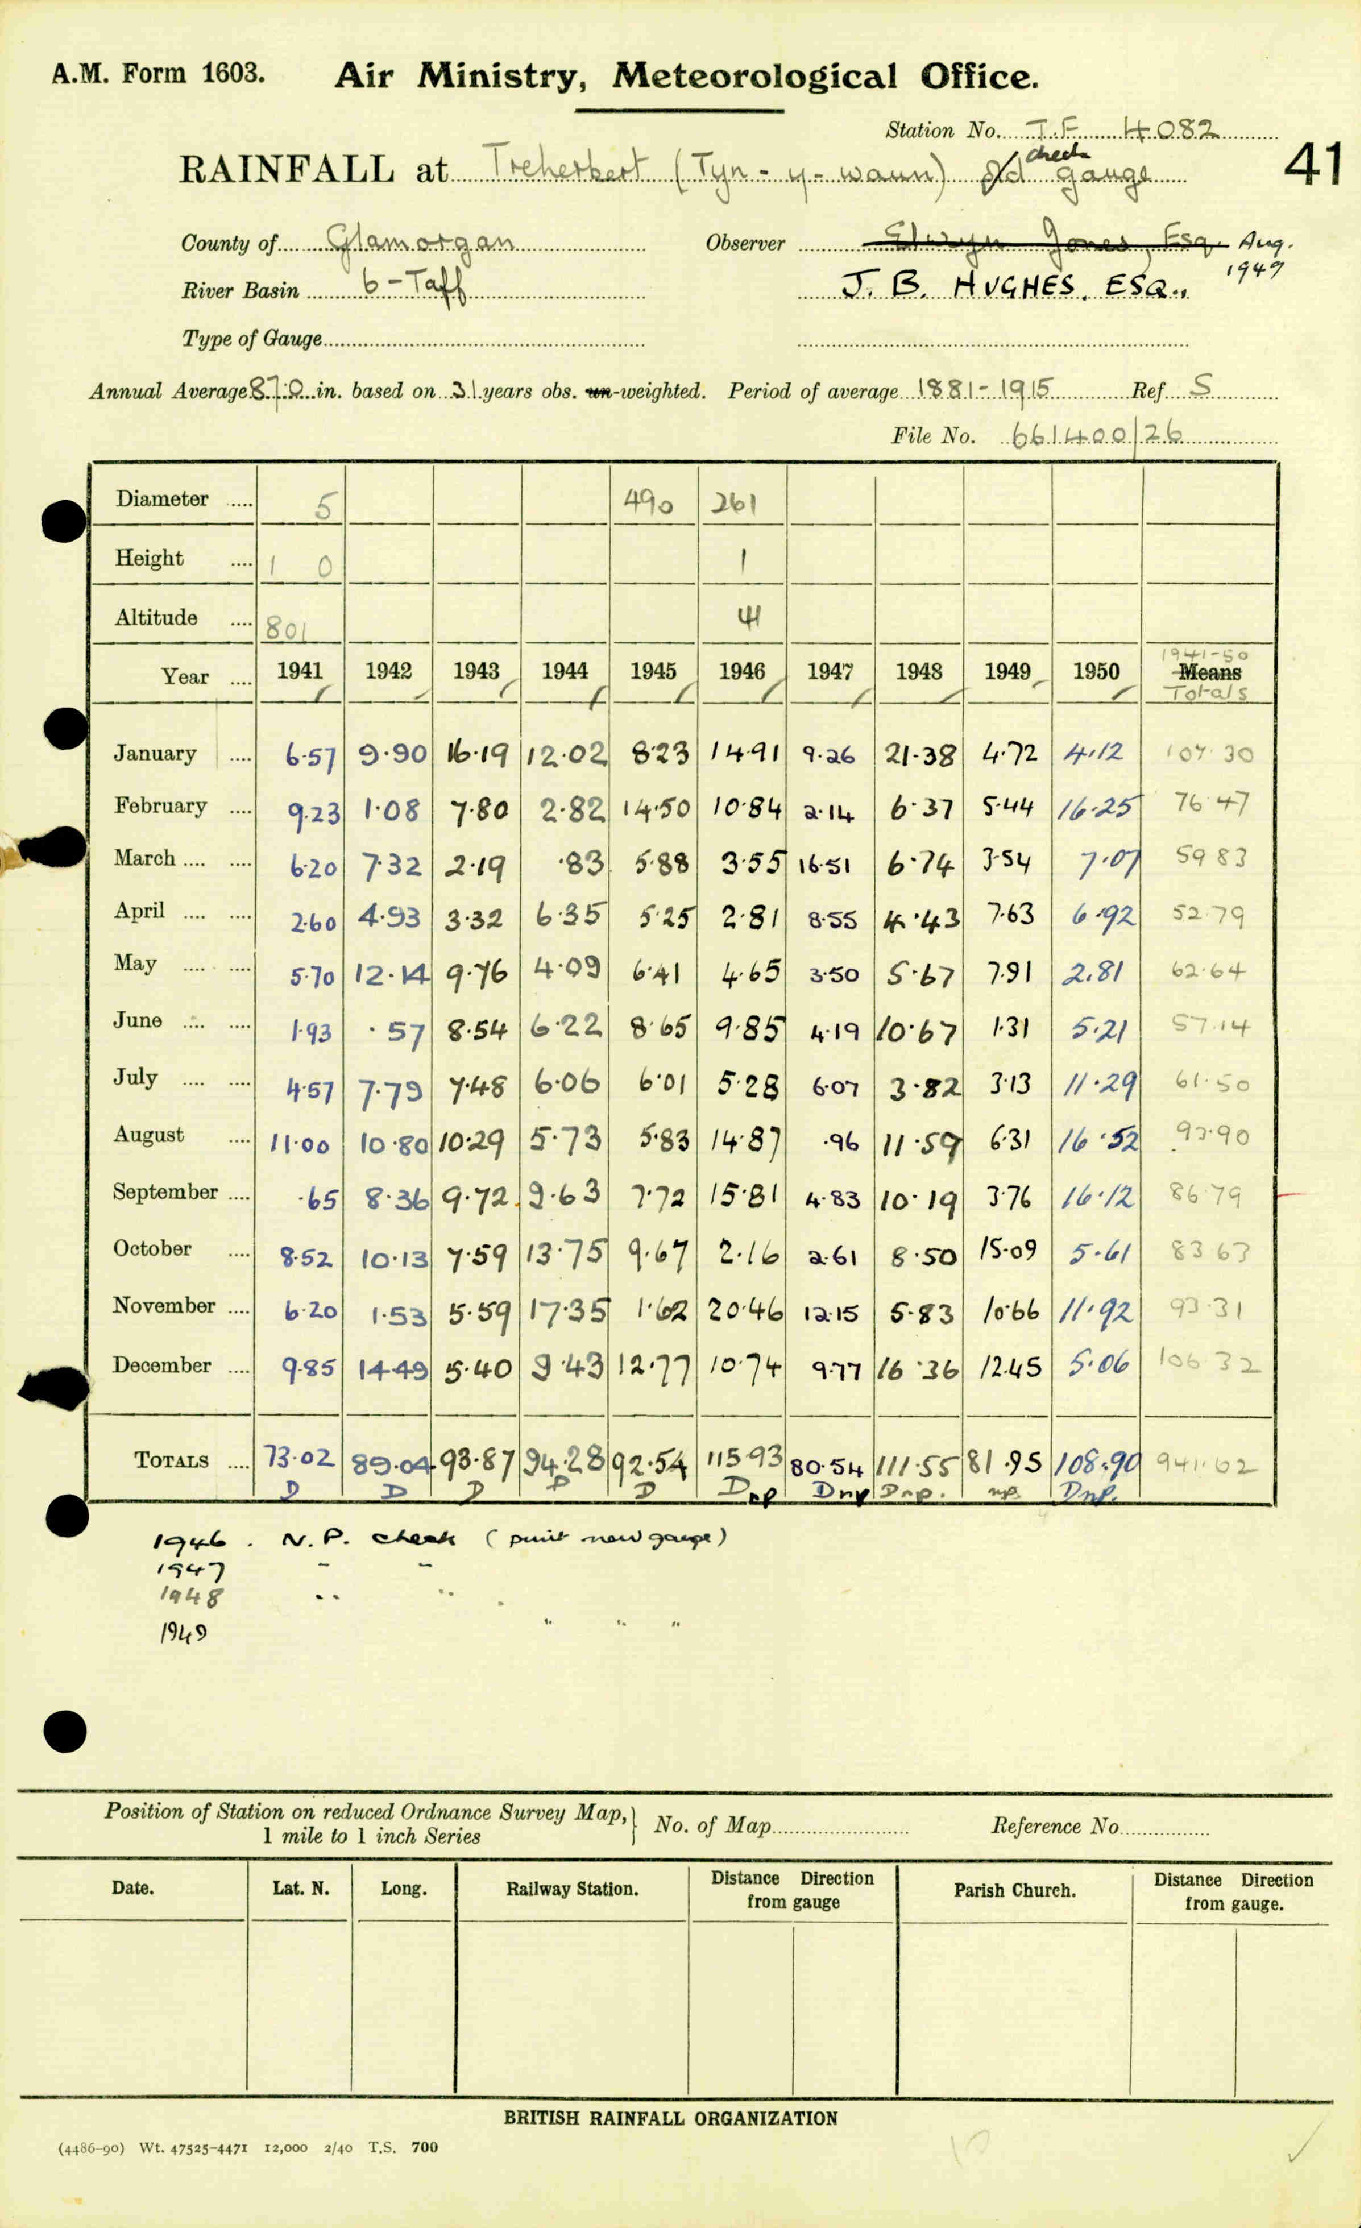 A.M. Form 1603. Air Ministry, Meteorological Office.
Station No. T.F 4082
RAINFALL at Treherbert (Tyn-y-waun) old check gauge
41
County of Glamorgan Observer Elwyn Jones, Esq. Aug. 1949
River Basin 6-Taff J. B. HUGHES. ESQ.,
Type of Gauge
Annual Average 87.0 in. based on 31 years obs. un-weighted. Period of average 1881-1915 Ref S
File No. 661400/26
Diameter 5 490 261
Height 1 0 1
Altitude 801 41
Year 1941 1942 1943 1944 1945 1946 1947 1948 1949 1950 1941-50 Means Totals
January 6.57 9.90 16.19 12.02 8.23 14.91 9.26 21.38 4.72 4.12 107.30
February 9.23 1.08 7.80 2.82 14.50 10.84 2.14 6.37 5.44 16.25 76.47
March 6.20 7.32 2.19 .83 5.88 3.55 16.51 6.74 3.54 7.07 59.83
April 2.60 4.93 3.32 6.35 5.25 2.81 8.55 4.43 7.63 6.92 52.79
May 5.70 12.14 9.76 4.09 6.41 4.65 3.50 5.67 7.91 2.81 62.64
June 1.93 .57 8.54 6.22 8.65 9.85 4.19 10.67 1.31 5.21 57.14
July 4.57 7.79 7.48 6.06 6.01 5.28 6.07 3.82 3.13 11.29 61.50
August 11.00 10.80 10.29 5.73 5.83 14.87 .96 11.59 6.31 16.52 93.90
September .65 8.36 9.72 9.63 7.72 15.81 4.83 10.19 3.76 16.12 86.79
October 8.52 10.13 7.59 13.75 9.67 2.16 2.61 8.50 15.09 5.61 83.63
November 6.20 1.53 5.59 17.35 1.62 20.46 12.15 5.83 10.66 11.92 93.31
December 9.85 14.49 5.40 9.43 12.77 10.74 9.77 16.36 12.45 5.06 106.32
TOTALS 73.02 89.04 93.87 94.28 92.54 115.93 80.54 111.55 81.95 108.90 941.62
D D D D D Dnp Dnp Dnp. np. Dnp.
1946. N.P. check (print new gauge)
1947 " "
1948 " "
1949 " " "
Position of Station on reduced Ordnance Survey Map,
1 mile to 1 inch Series
No. of Map Reference No.
Date. Lat. N. Long. Railway Station. Distance Direction from gauge Parish Church. Distance Direction from gauge.
BRITISH RAINFALL ORGANIZATION
(4486-90) Wt. 47525-4471 12,000 2/40 T.S. 700